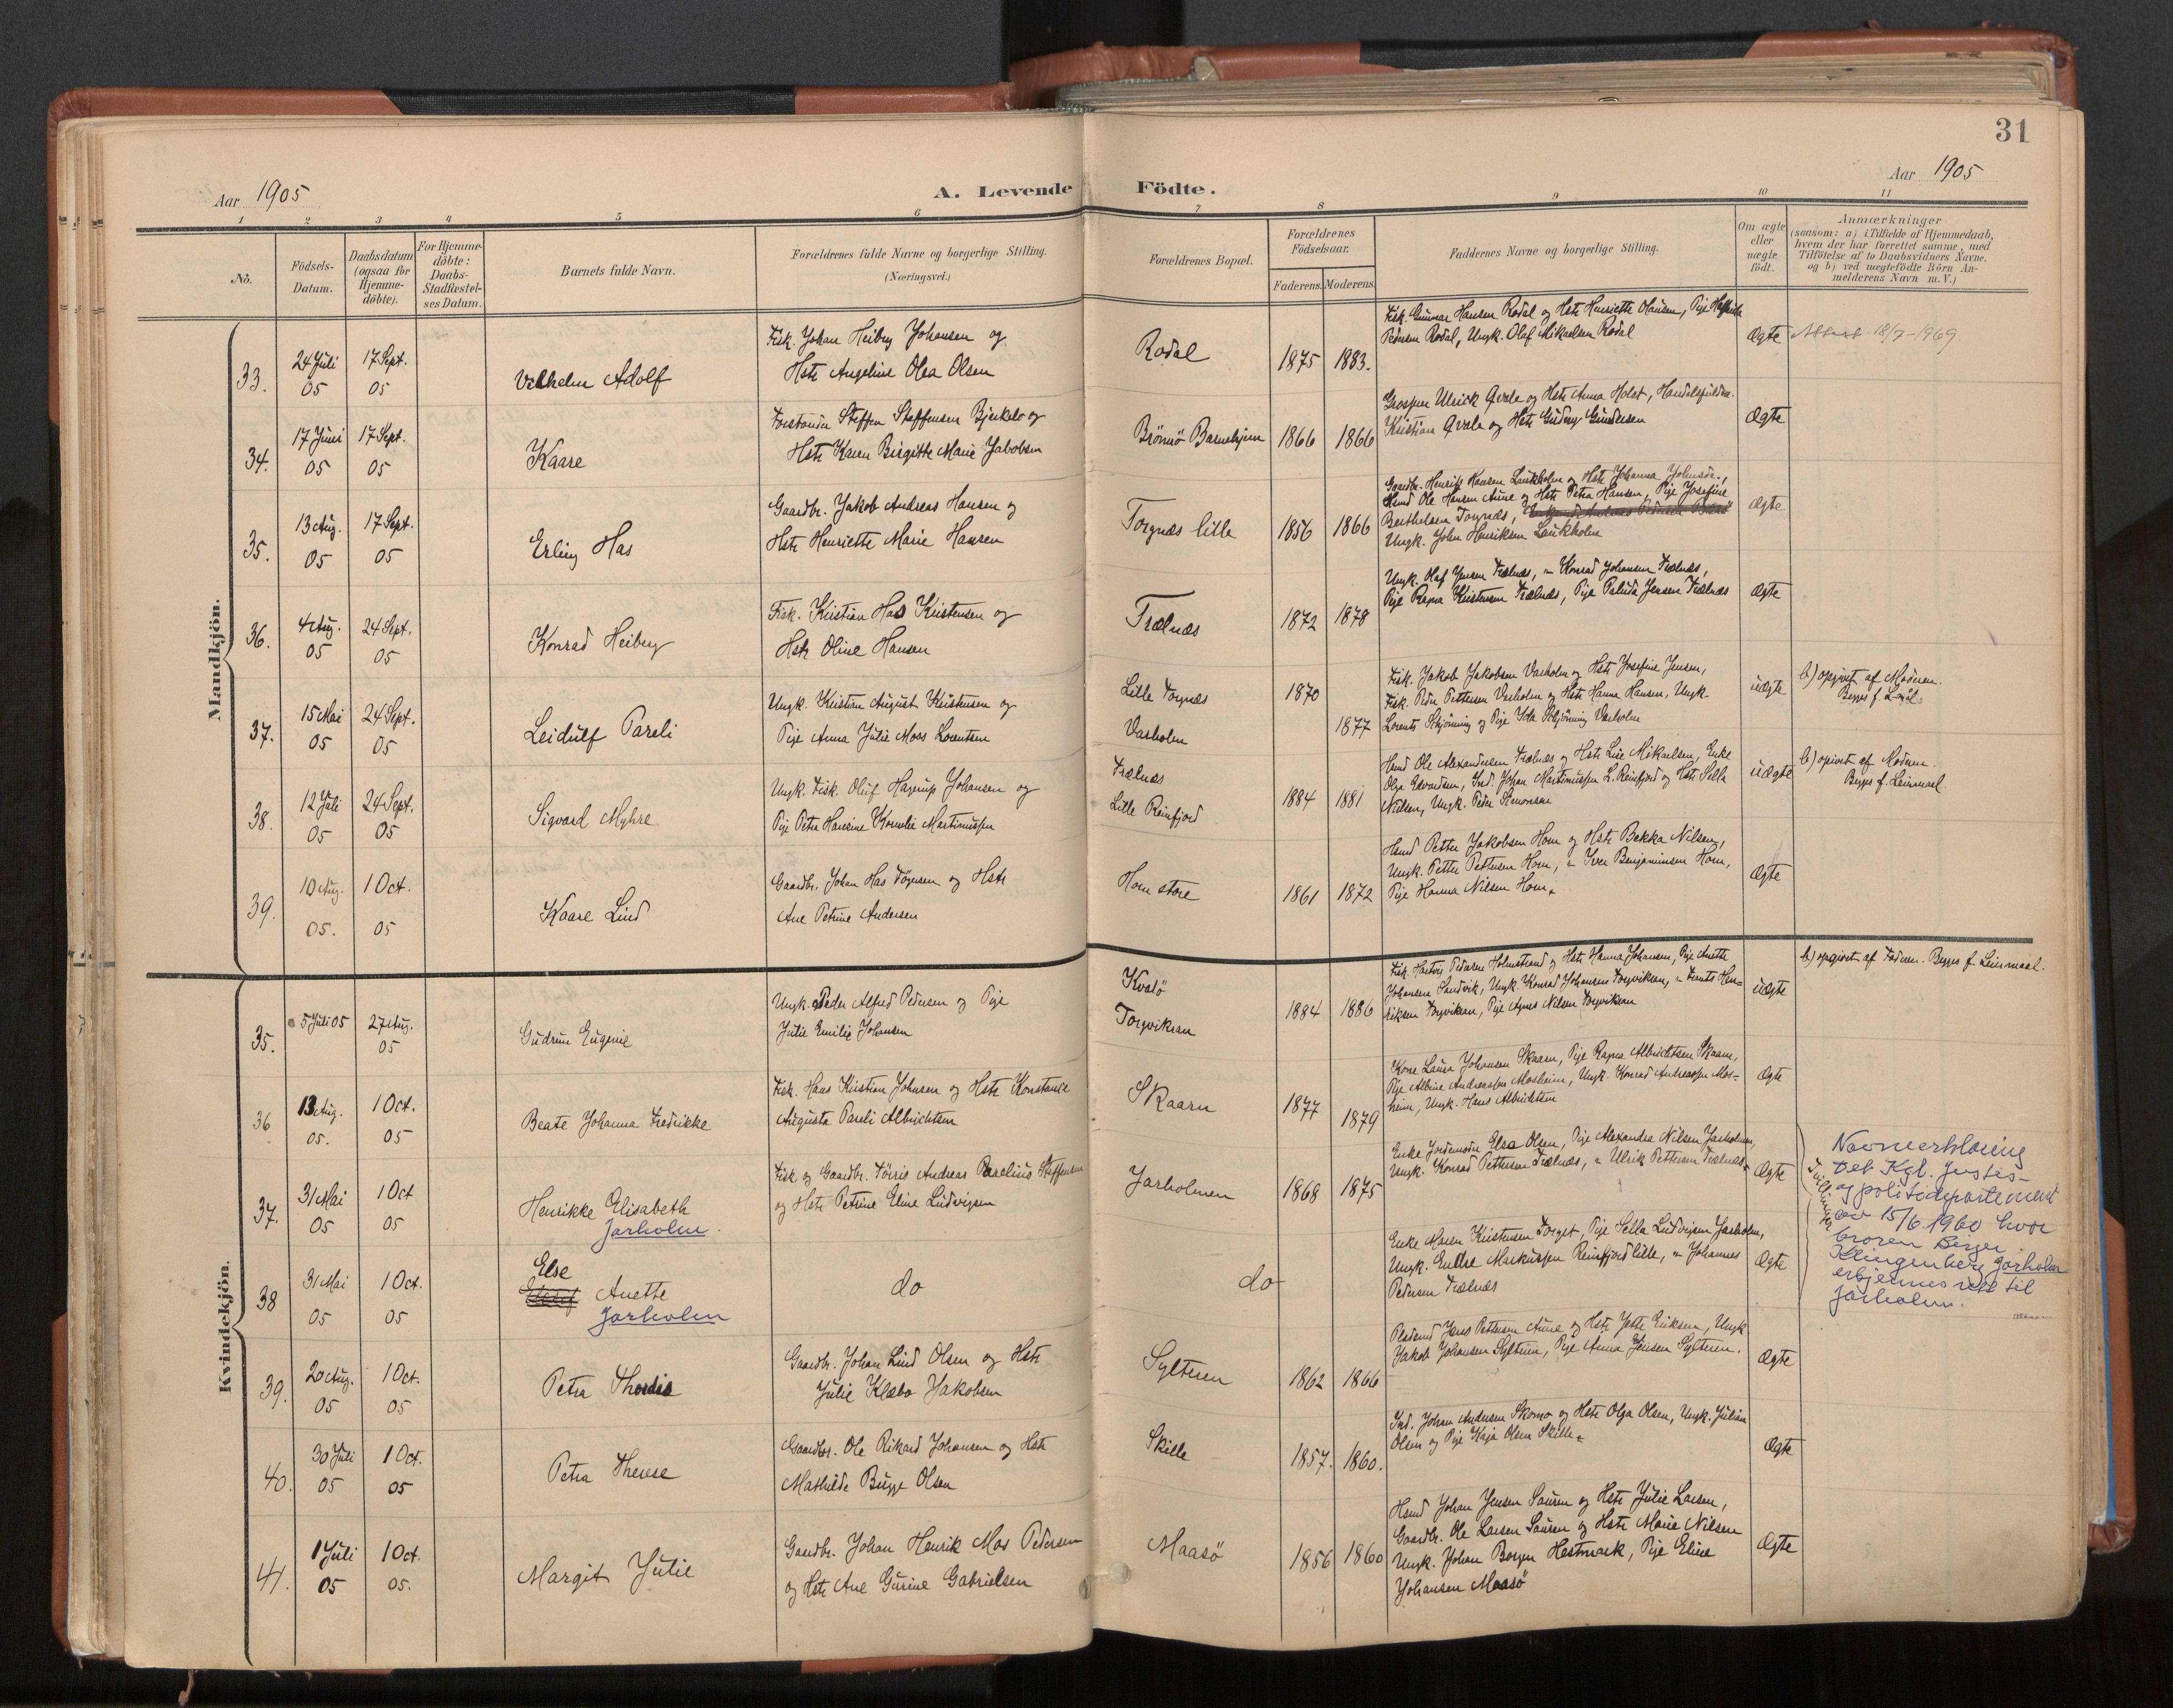 31
Aar 1905
A. Levende Födte.
Aar 1905
1 2 3 4 5 6 7 8 9 10 11
No.
Födsels-Datum.
Daabsdatum (ogsaa for Hjemme-döbte).
For Hjemme-döbte: Daabs-Stadfæstel-ses Datum.
Barnets fulde Navn.
Forældrenes fulde Navne og borgerlige Stilling. (Næringsvei.)
Forældrenes Bopæl.
Forældrenes Födselsaar.
Faderens. Moderens.
Faddernes Navne og borgerlige Stilling.
Om ægte eller uægte födt.
Anmærkninger
(saasom: a) i Tilfælde af Hjemmedaab,
hvem der har forrettet samme, med
Tilföielse af to Daabsvidners Navne.
og b) ved uægtefödte Börn An-
melderens Navn m. V.)
Mandkjön.
33.
24 Juli 05
17 Sept. 05
Vilhelm Adolf
Fisk. Johan Heiberg Johansen og
Hstr Angeline Olea Olsen
Rodal
1875 1883.
Fisk. Gunnar Hansen Rodal og Hstr Henriette Hansen, Pige
Pedersen Rodal, Ungk. Olaf Mikaelsen Rodal
Ægte
Attest 18/7-1969
34.
17 Juni 05
17 Sept. 05
Kaare
Forstander Steffen Steffensen Bjerkelo og
Hstr Karen Birgitte Marie Jakobsen
Brönnö Barnehjem
1866 1866
Ulrick Qvale og Hstr Anna Holst,
Kristian Qvale og Hstr Gundersen
Ægte
35.
13 Aug. 05
17 Sept. 05
Erling Has
Gaardbr. Jakob Andreas Hansen og
Hstr Henriette Marie Hansen
Torgnæs lille
1856 1866
Gaardbr. Henrik Hansen Laukholm og Hstr Johanna
Hsmd Ole Hansen Aune og Hstr Petra Hansen, Pige Josefine
Berthelsen Torgnæs,
Ungk. John Henriksen Laukholm
Ægte
36.
4 Aug. 05
24 Sept. 05
Konrad Heiberg
Fisk. Kristian Has Kristensen og
Hstr Oline Hansen
Trælnæs
1872 1878
Ungk. Olaf Jensen Trælnæs, " Konrad Johansen Trælnæs,
Pige Ragna Kristensen Trælnæs, Pige Palida Jensen Trælnæs
Ægte
37.
15 Mai 05
24 Sept. 05
Leidulf Pareli
Ungk. Kristian August Kristensen og
Pige Anna Julie Moss Lorentsen
Lille Torgnæs
Vasholm
1870
1877
Fisk. Jakob Jakobsen Vasholm og Hstr Josefine Jensen,
Fisk. Peder Pettersen Vasholm og Hstr Hanna Hansen, Ungk.
Lorents Schjönning og Pige Ida Schjönning Vasholm
uægte
b) opgivet af Moderen.
Begges f. Leirml.
38.
12 Juli 05
24 Sept. 05
Sigvard Myhre
Ungk. Fisk. Oluf Hagerup Johansen og
Pige Petra Hansine Kornelie Martinussen
Trælnæs
Lille Reinfjord
1884 1881
Hsmd Ole Alexandersen Trælnæs og Hstr Line Mikaelsen, Enke
Olga Edvardsen, Ind. Johan Martinussen L. Reinfjord og Hstr Sella
Nilsen, Ungk. Peder Simonsen
uægte
b) opivet af Moderen.
Begges f. Leirmaal.
39.
10 Aug. 05.
1 Oct. 05
Kaare Lind
Gaardbr. Johan Has Törgersen og Hstr
Ane Petrine Andersen
Horn store
1861 1872
Hsmd Petter Jakobsen Horn og Hstr Bekka Nilsen,
Ungk. Petter Pettersen Horn, " Iver Benjaminsen Horn,
Pige Hanna Nilsen Horn.
Ægte
Kvindekjön.
35.
5 Juli 05
27 Aug. 05
Gudrun Eugenie
Ungk. Peder Alfred Pedersen og Pige
Julie Emilie Johansen
Kvalö
Torgvikran
1884 1886
Fisk. Hartvig Pedersen Holmstrand og Hstr Hanna Johansen, Pige Anette
Johansen Sandvik, Ungk. Konrad Johansen Torgvikran, " Frants Hen-
riksen Torgvikran, Pige Agnes Nilsen Torgvikran
uægte
b) opgivet af Faderen. Begges f. Leirmaal.
36
13 Aug. 05.
1 Oct. 05
Beate Johanna Fredrikke
Fisk. Hans Kristian Johnsen og Hstr Konstanse
Augusta Pareli Albrichtsen
Skaarn
1877 1879
Kone Laura Johansen Skaarn, Pige Ragna Albrichtsen Skaarn,
Pige Albine Andreassen Mosheim, Ungk. Konrad Andreassen Mos-
heim, Ungk. Hans Albrichtsen
Ægte
37.
31 Mai 05
1 Oct 05
Henrikke Elisabeth
Jarholm.
Fisk og Gaardbr. Törris Andreas Parelius Steffensen
og Hstr Petrine Eline Ludvigsen
Jarholmen
1868 1875
Enke Jordemoder Elsa Olsen, Pige Alexandra Nilsen Jarholmen,
Ungk. Konrad Pettersen Trælnæs, " Ulrik Pettersen Trælnæs
Ægte
Tvillinger
Navneerklæring
Det Kgl. Justis-
og politidepartement
av 15/6 1960 hvor
broren Birger
Klingenberg Jarholm
erkjennes rett til
Jarholm.
38
31 Mai 05
1 Oct. 05
Else
Anette
Jarholm
do
do
Enke Maren Kristensen Torget, Pige Sella Ludvigsen Jarholm,
Ungk. Markussen Reinfjord lille, " Johannes
Pedersen Trælnæs
Ægte
39.
20 Aug. 05
1 Oct. 05
Petra Thordis
Gaardbr. Johan Lind Olsen og Hstr
Julie Klæbo Jakobsen
Sylteren
1862 1866
Pladsmd Jens Pettersen Aune og Hstr Jette Eriksen, Ungk
Jakob Johansen Sylteren, Pige Anna Jensen Sylteren.
Ægte
40.
30 Juli 05
1 Oct. 05
Petra Therese
Gaardbr. Ole Rikard Johansen og Hstr
Mathilde Bugge Olsen
Skille
1857. 1860.
Ind. Johan Andersen Skomo og Hstr Olga Olsen, Ungk. Julian
Olsen og Pige Kaja Olsen Skille
Ægte
41.
1 Juli 05
1 Oct. 05.
Margit Julie
Gaardbr. Johan Henrik Mos Pedersen
og Hstr Ane Gurine Gabrielsen
Maasö
1856 1860
Hsmd Johan Jensen Sauren og Hstr Julie Larsen,
Gaardbr. Ole Larsen Sauren og Hstr Marie Nilsen
Ungk. Johan Borgen Hestmark, Pige Eline
Johansen Maasö
Ægte